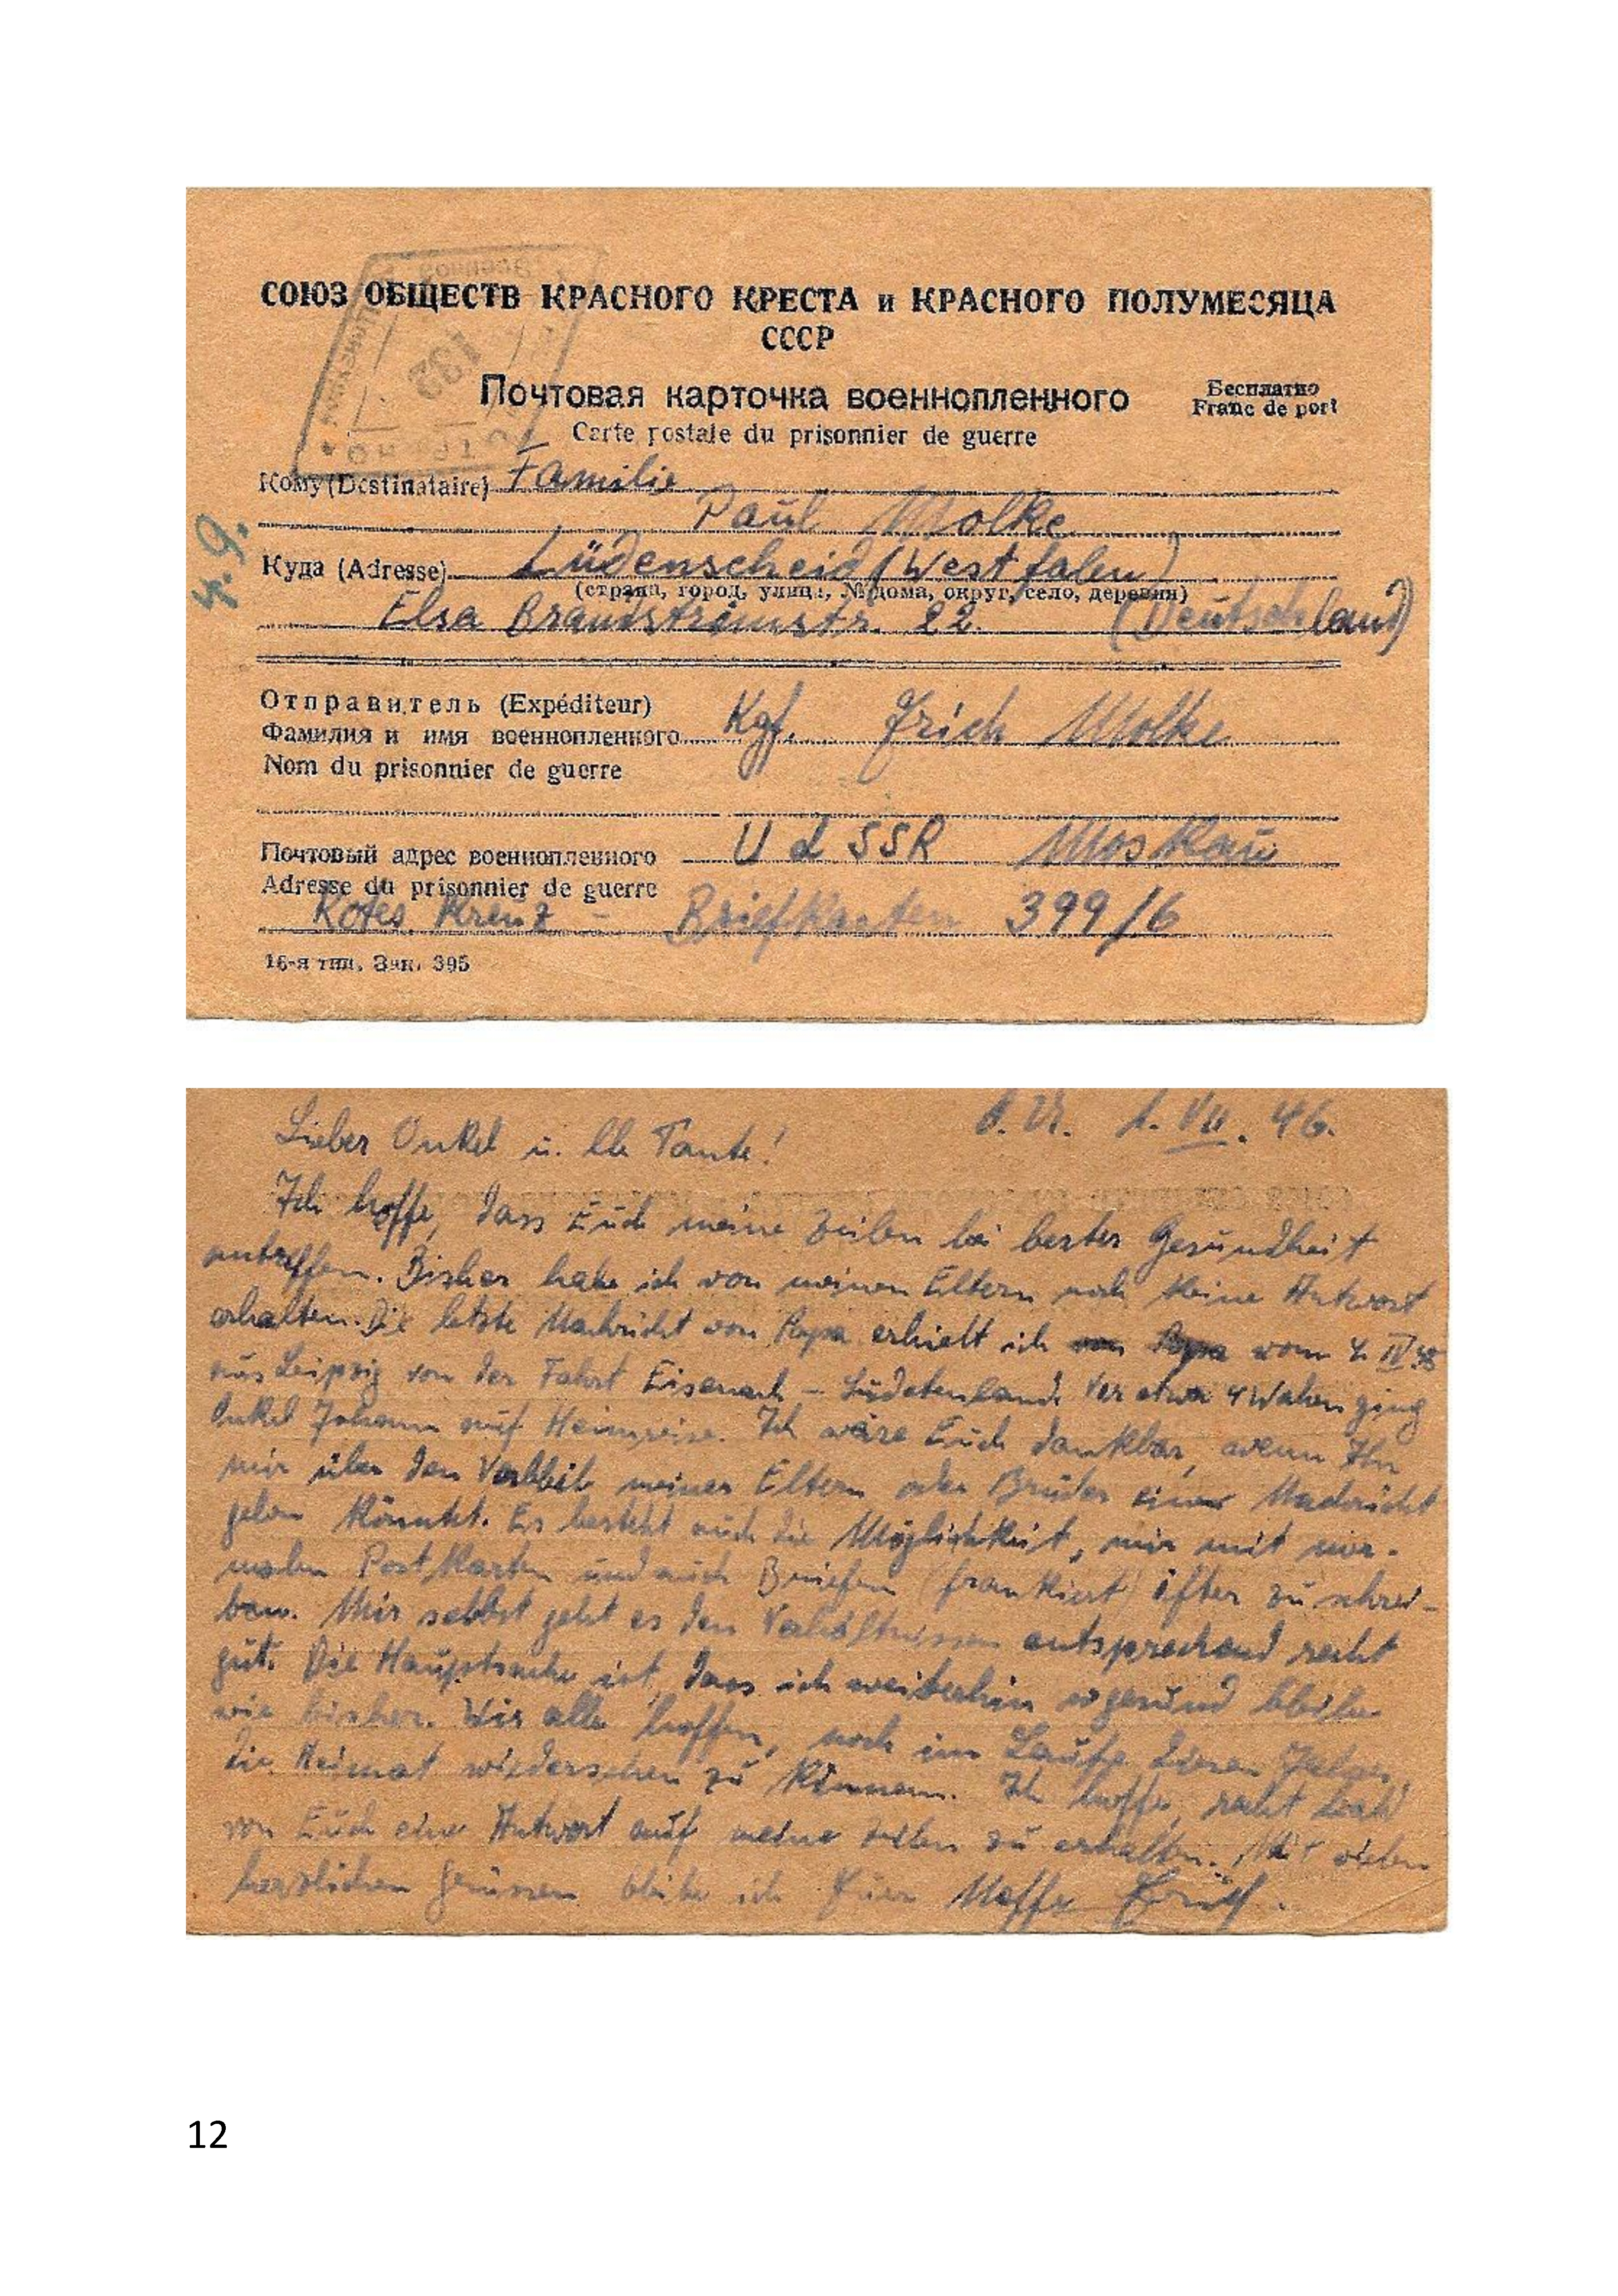 СОЮЗ ОБЩЕСТВ КРАСНОГО КРЕСТА и КРАСНОГО ПОЛУМЕСЯЦА
СССР
Почтовая карточка военнопленного
Бесплатно
Franc de port
Carte postale du prisonnier de guerre
132
Кому (Destinataire) Familie
Paul Molke
4. 9.
Куда (Adresse) Lüdenscheid (Westfalen)
(страна, город, улица, № дома, округ, село, деревня)
Elsa Brandströmstr. 22. (Deutschland)
Отправитель (Expéditeur)
Фамилия и имя военнопленного Kgf. Erich Molke
Nom du prisonnier de guerre
Почтовый адрес военнопленного U d SSR Moskau
Adresse du prisonnier de guerre
Rotes Kreuz - Briefkasten 399/6
16-я тип. Зак. 395
1. VII. 46.
Lieber Onkel u. lb Tante!
Ich hoffe, dass Euch meine Zeilen bei bester Gesundheit
antreffen. Bisher habe ich von meinen Eltern noch keine Antwort
erhalten. Die letzte Nachricht von Papa erhielt ich vom IV 45
aus Leipzig von der Fahrt Eisenach – Sudetenland. Vor etwa 4 Wochen ging
Onkel Johann auf Heimreise. Ich wäre Euch dankbar, wenn Ihr
mir über den Verbleib meiner Eltern oder Brüder eine Nachricht
geben könntet. Es besteht auch die Möglichkeit, mir mit nor-
malen Postkarten und auch Briefen (frankiert) öfter zu schrei-
ben. Mir selbst geht es den Verhältnissen entsprechend recht
gut. Die Hauptsache ist, dass ich weiterhin so gesund bleibe
wie bisher. Wir alle hoffen, noch im Laufe dieses Jahres
die Heimat wiedersehen zu können. Ich hoffe, recht bald
von Euch eine Antwort auf meine Zeilen zu erhalten. Mit vielen
herzlichen Grüssen bleibe ich Euer Neffe Erich.
12